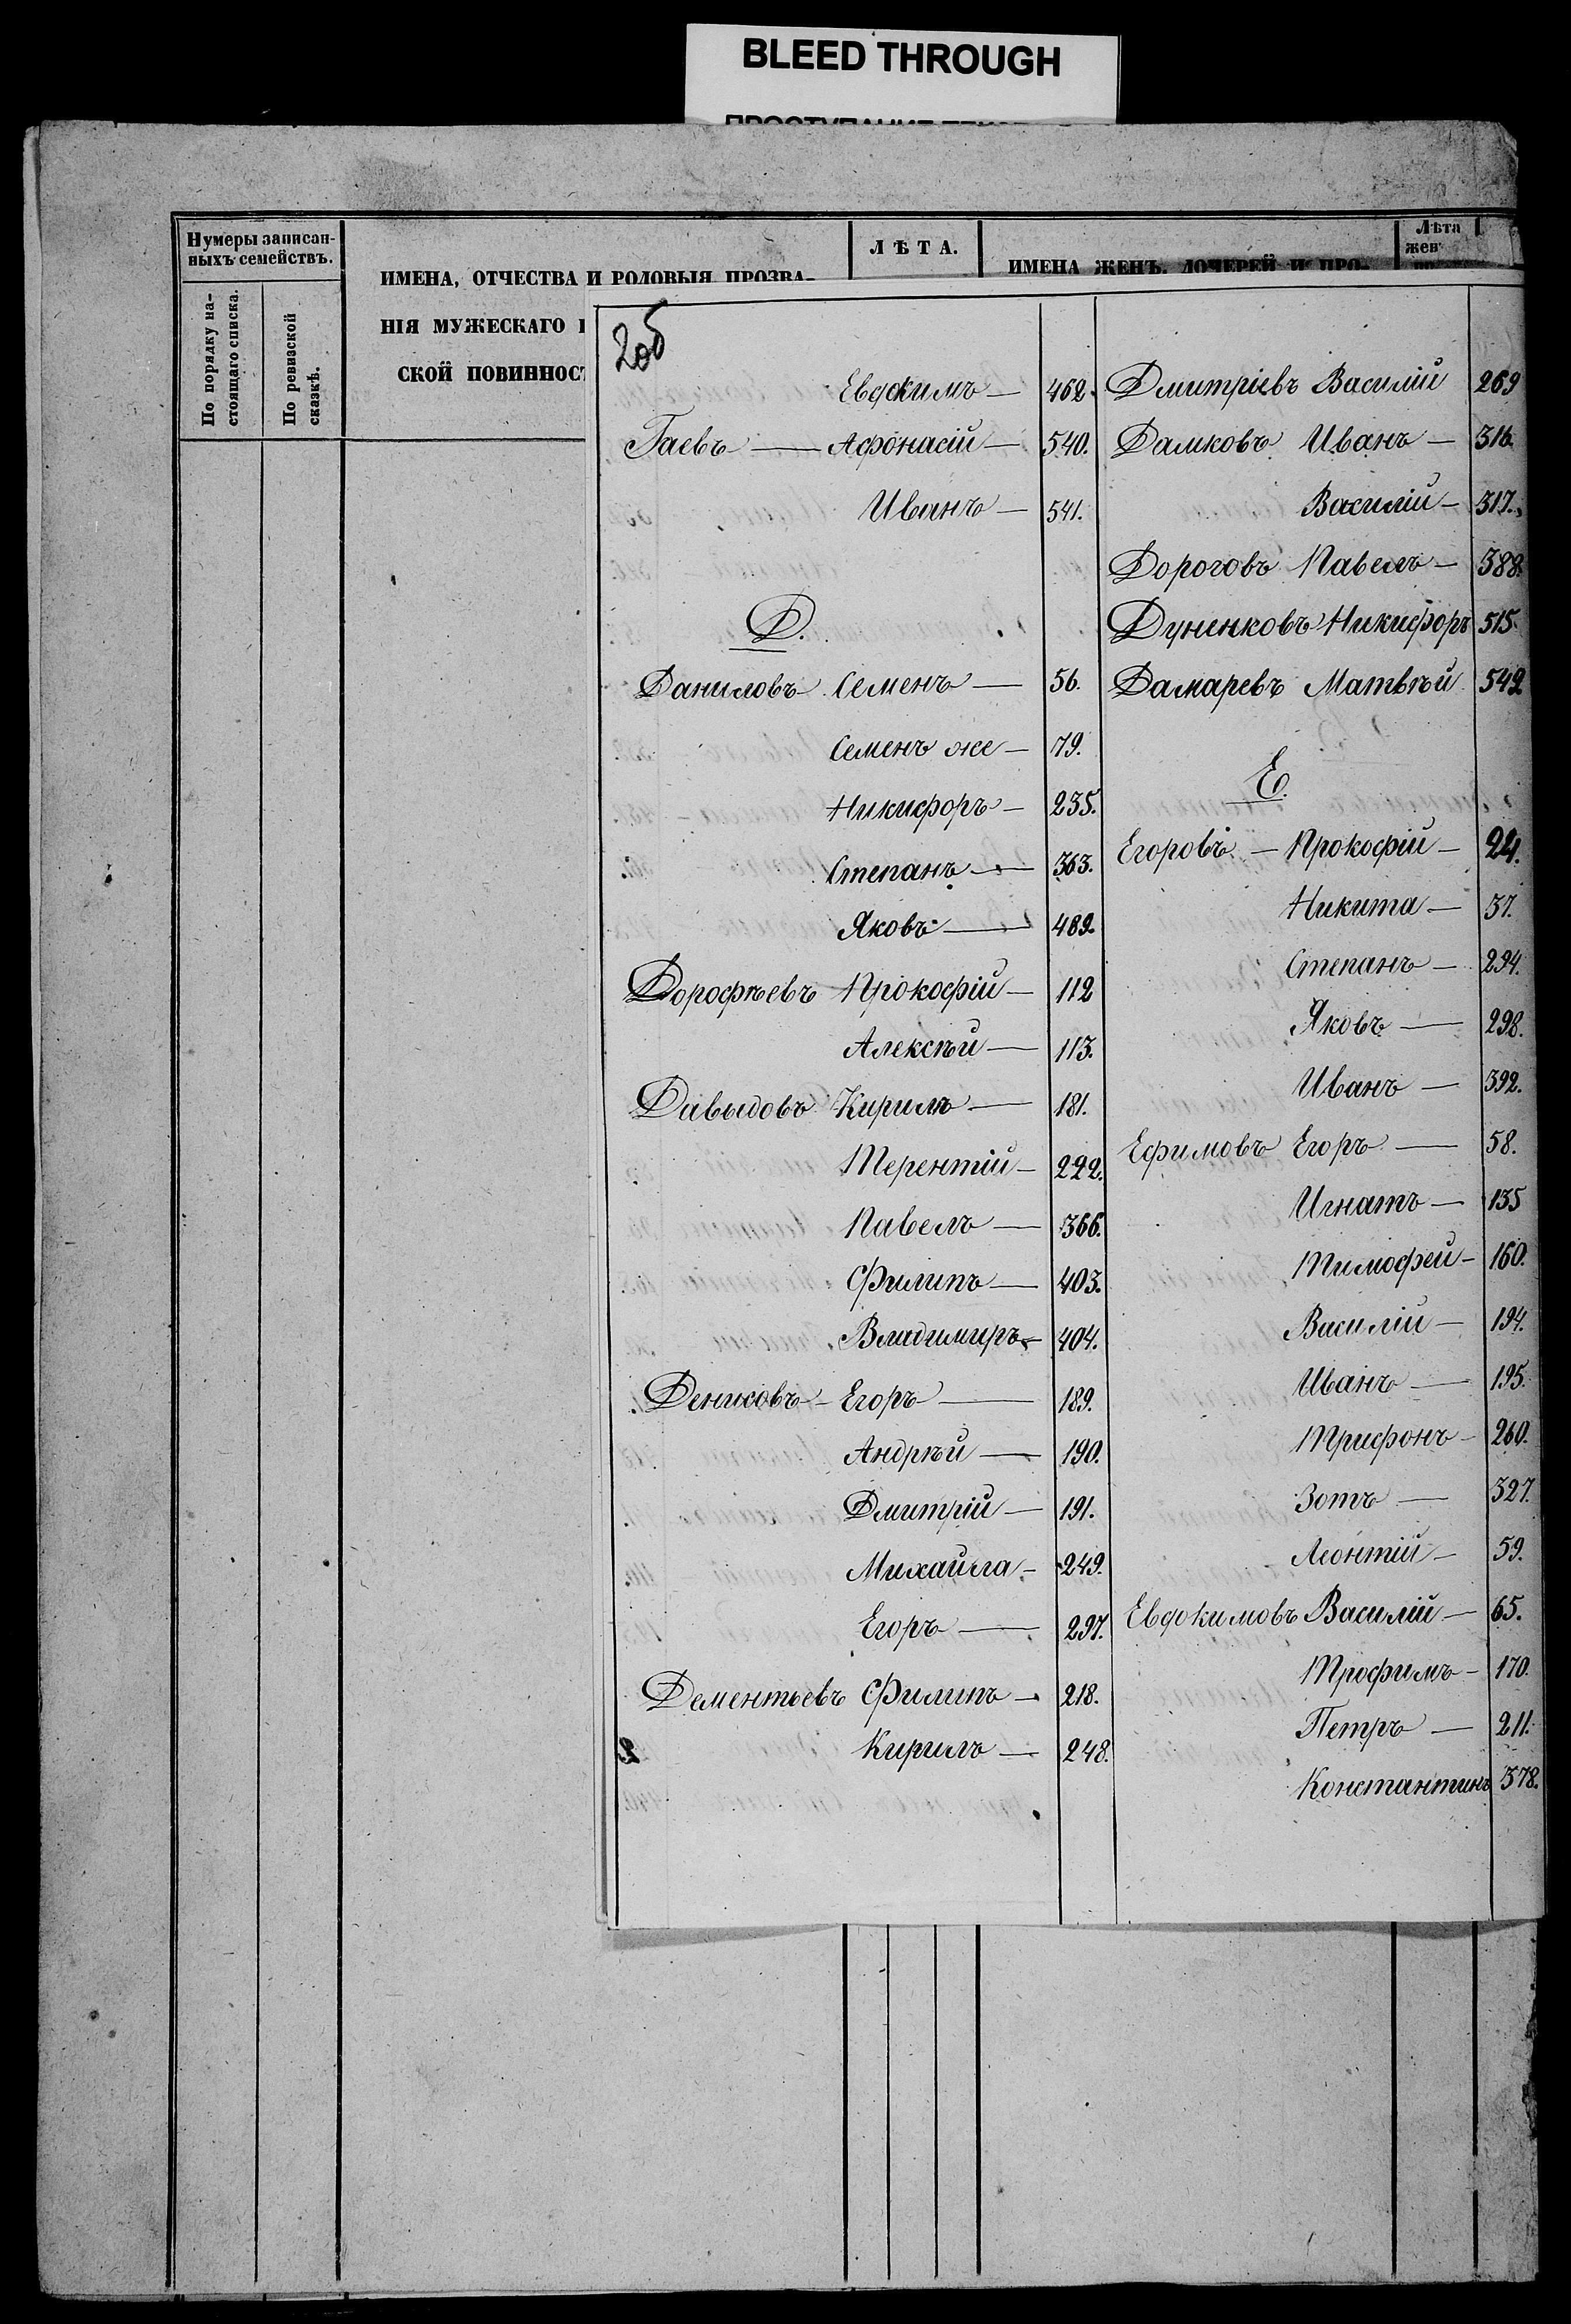 BLEED THROUGH
Нумеры записан-
ныхъ семействъ.
По порядку на-
стоящаго списка.
По ревизской
сказкѣ.
ИМЕНА, ОТЧЕСТВА И РОДОВЫЯ ПРОЗВА-
НІЯ МУЖЕСКАГО
СКОЙ ПОВИННОСТ
ЛѢТА.
ИМЕНА ЖЕНЪ, ДОЧЕРЕЙ И ПРО-
Лѣта
жен
2об
Евдокимъ — 462.
Гаевъ — Афонасій — 540.
Иванъ — 541.
Д.
Даниловъ Семенъ — 56.
Семенъ же — 79.
Никифоръ — 235.
Степанъ — 363.
Яковъ — 489.
Дорофѣевъ Прокофій — 112
Алексѣй — 113.
Давыдовъ Кирилъ — 181.
Терентій — 222.
Павелъ — 366.
Филипъ — 403.
Владимиръ — 404.
Денисовъ — Егоръ — 189.
Андрѣй — 190.
Дмитрій — 191.
Михайла — 249.
Егоръ — 297.
Дементьевъ Филипъ — 218.
Кирилъ — 248.
Дмитріевъ Василій 269
Дамковъ Иванъ — 316.
Василій — 317.
Дороговъ Павелъ — 388.
Дуненковъ Никифоръ 515.
Дамаревъ Матвѣй 542
Е.
Егоровъ — Прокофій — 24.
Никита — 37.
Степанъ — 294.
Яковъ — 298.
Иванъ — 392.
Ефимовъ Егоръ — 58.
Игнатъ — 135
Тимофей — 160.
Василій — 194.
Иванъ — 195.
Трифонъ — 260.
Зотъ — 327.
Леонтій — 59.
Евдокимовъ Василій — 65.
Трофимъ — 170.
Петръ — 211.
Константинъ 378.